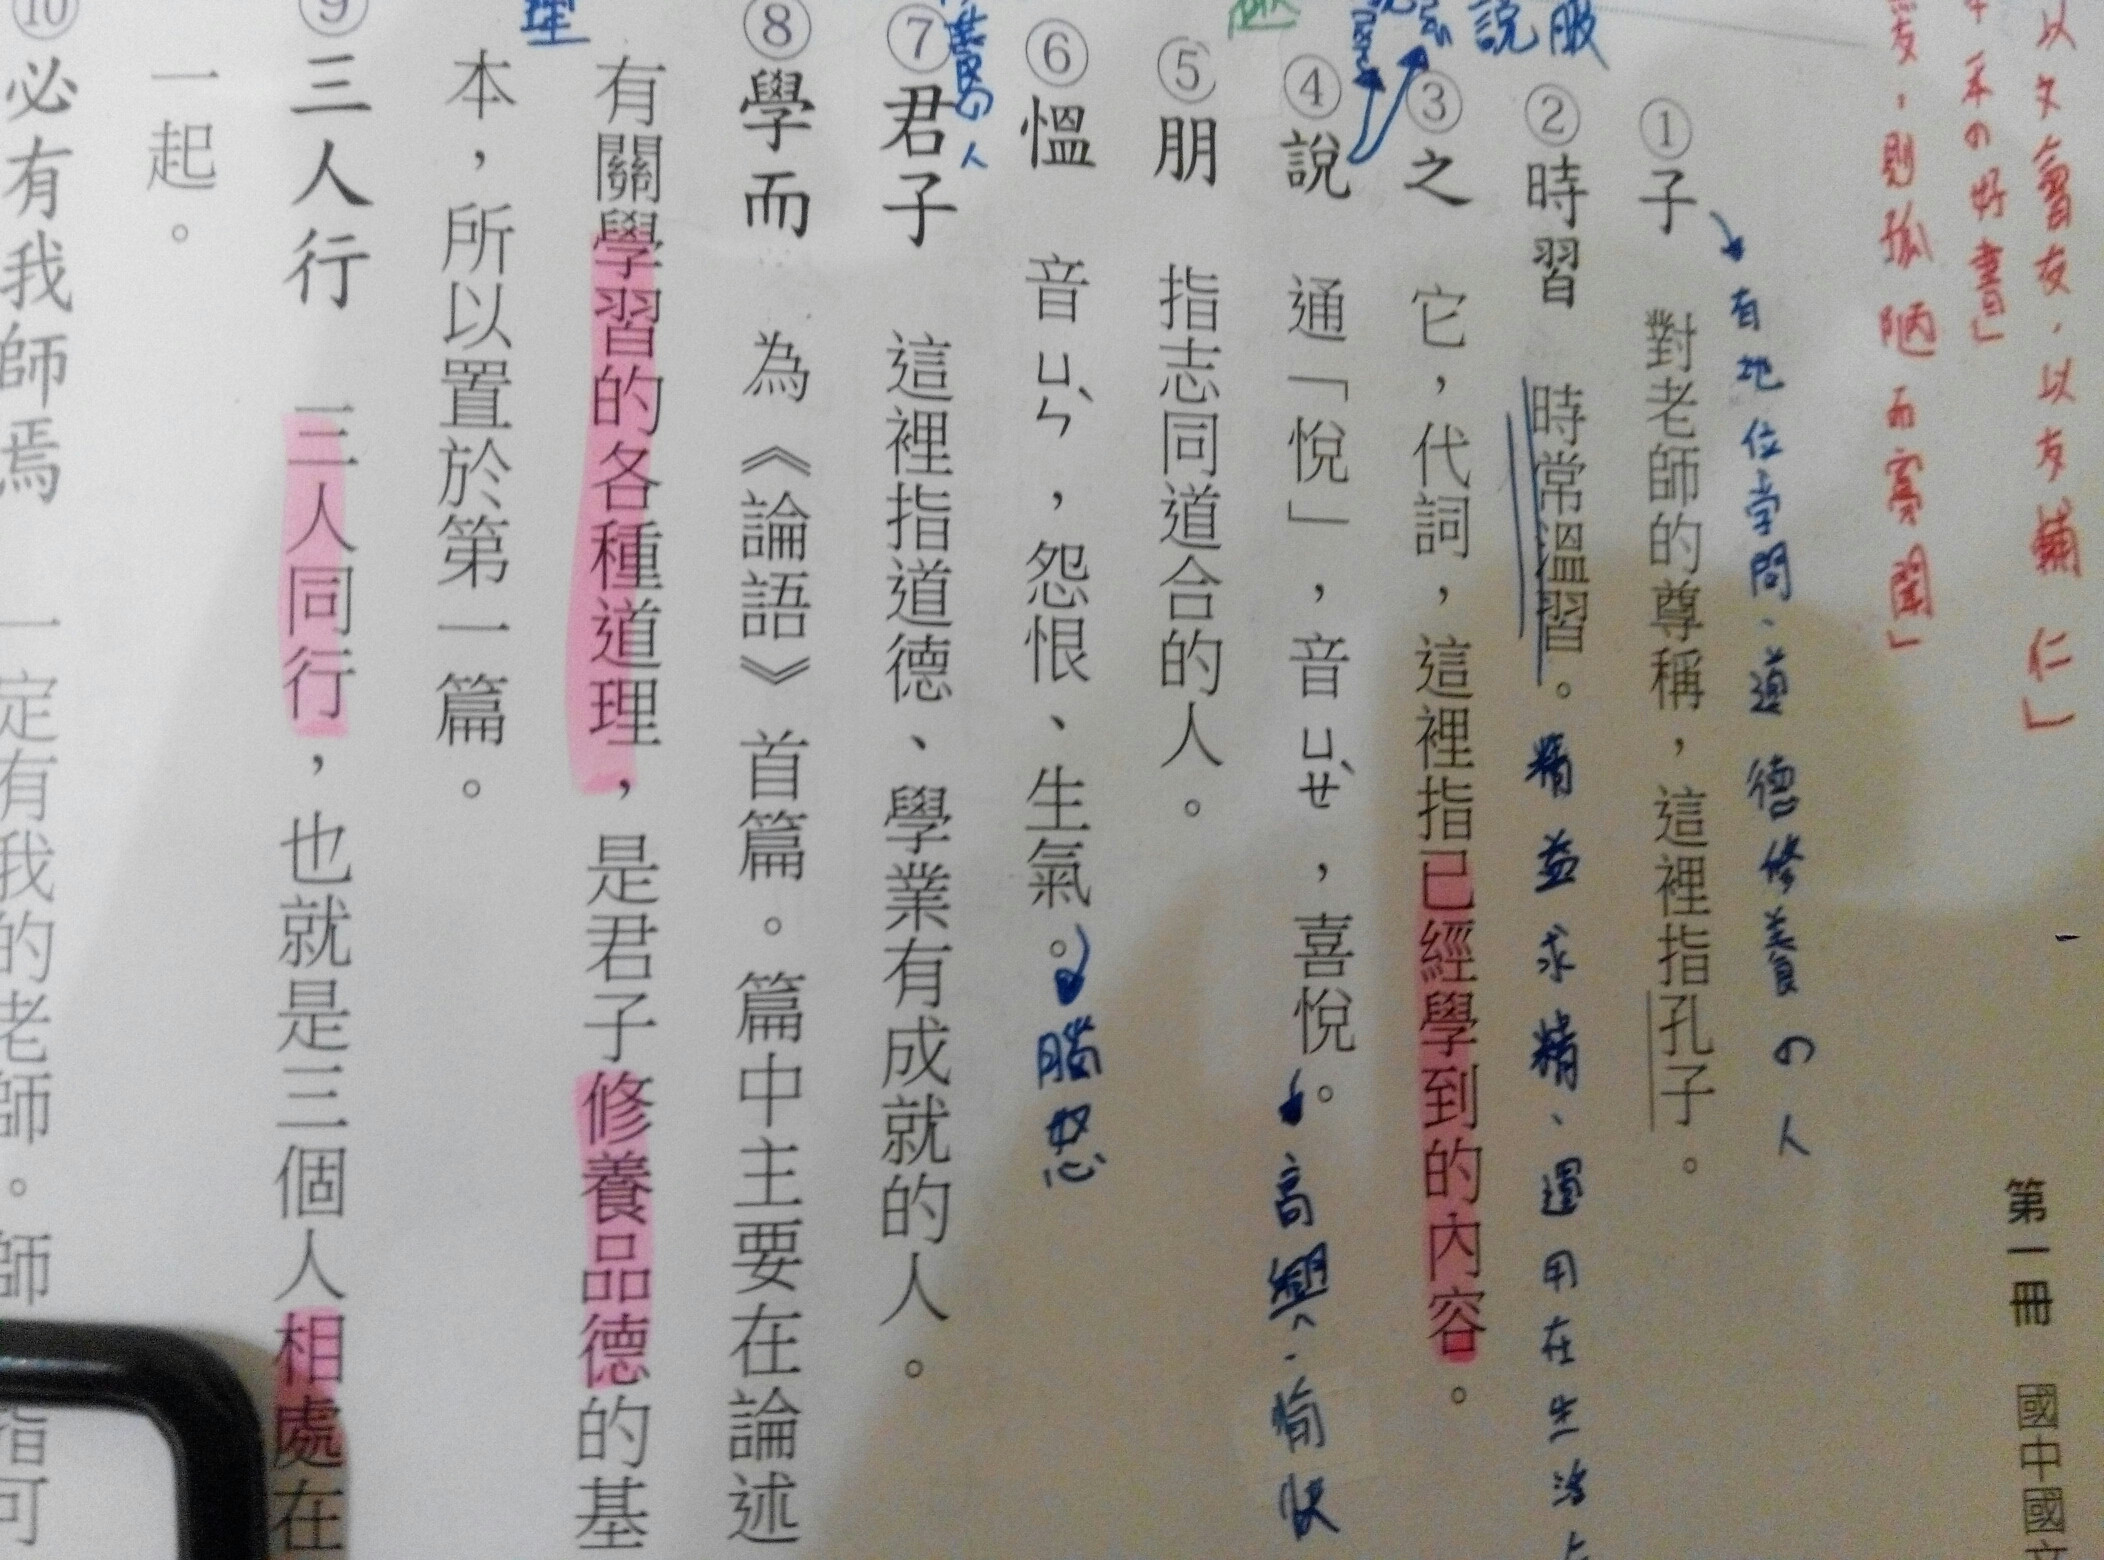 以文會友，以友輔仁」
本の好書」
友，則孤陋而寡聞」
第一冊 國中國文
有地位學問、道德修養の人
①子 對老師的尊稱，這裡指孔子。
②時習 時常溫習。精益求精、運用在生活上
說服
③之 它，代詞，這裡指已經學到的內容。
④說 通「悅」，音ㄩㄝˋ，喜悅。高興、愉快
⑤朋 指志同道合的人。
⑥慍 音ㄩㄣˋ，怨恨、生氣。腦怒
の人
⑦君子 這裡指道德、學業有成就的人。
⑧學而 為《論語》首篇。篇中主要在論述
有關學習的各種道理，是君子修養品德的基
本，所以置於第一篇。
理
⑨三人行 三人同行，也就是三個人相處在
一起。
⑩必有我師焉 一定有我的老師。師 指可